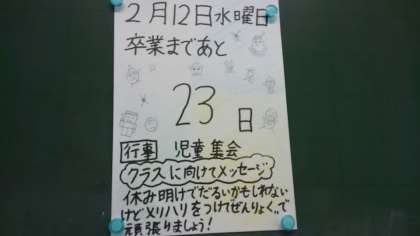 2月12日水曜日
卒業まであと
23日
行事 児童集会
クラスに向けてメッセージ
休み明けでだるいかもしれない
けどメリハリをつけてぜんりょくで
頑張りましょう!